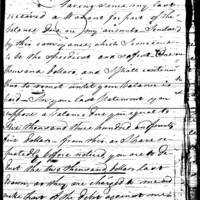 Having since my last
received a Warrant for part of the
balance due on my accounts - I embrace
by this conveyance which I conceive
to be the speediest and safest One
thousand dollars, and I shall continue
to remit until your balance is
paid - In your last statement you
suppose a balance due you equal to
five thousand three hundred & fifty
five Dollars - from this, as I have
stated before noticed you are to de-
duct the two thousand dollars last
drawn, as they are charged to me and
make part of the debt against me